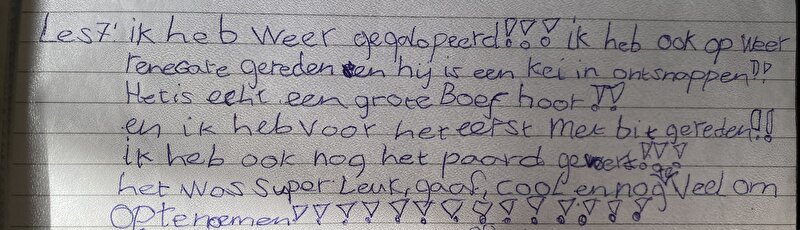 Les 7: ik heb weer gegalopeerd!!! ik heb ook op weer
renegate gereden en hij is een kei in ontsnappen!!
Het is echt een grote Boef hoor!!
en ik heb voor het eerst met bit gereden!!
ik heb ook nog het paard gevoert!!!
het was super Leuk, gaaf, cool en nog te veel om
op te noemen!!!!!!!!!!!!!